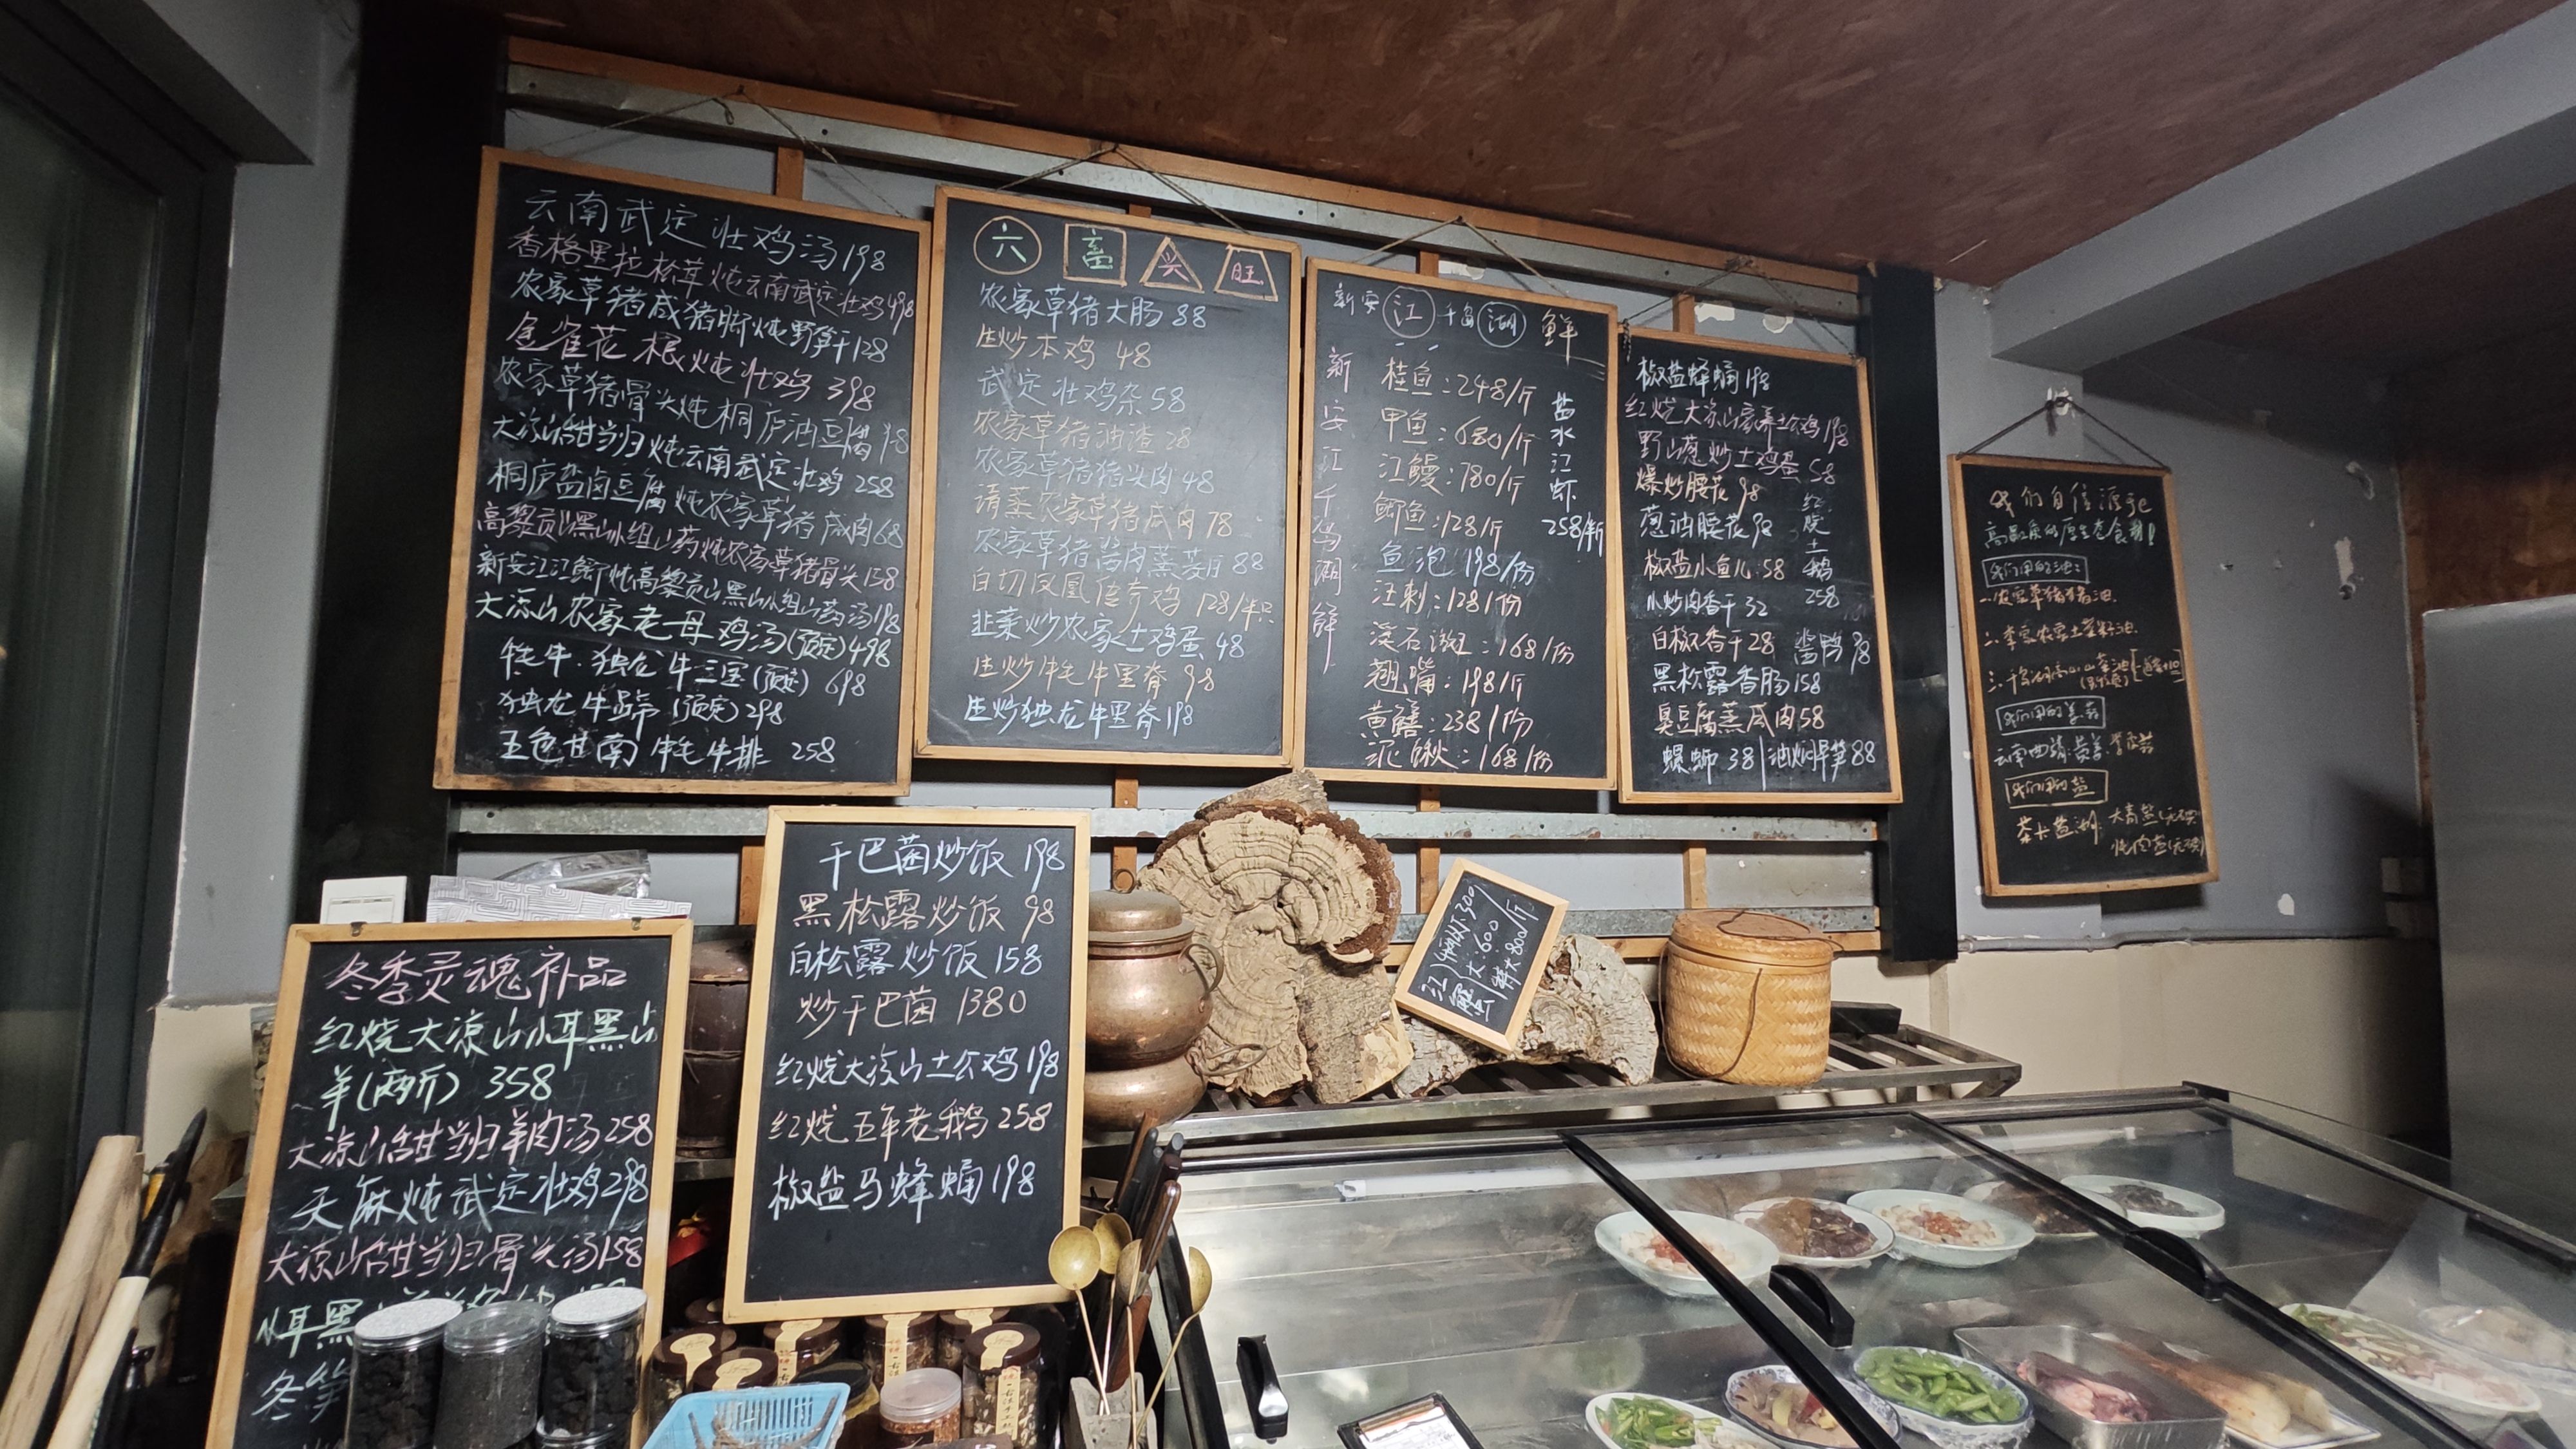 云南武定壮鸡汤198
香格里拉松茸炖云南武定壮鸡498
农家草猪咸猪脚炖野笋干128
金雀花根炖壮鸡398
农家草猪骨头炖桐庐油豆腐98
大凉山甜当归炖云南武定壮鸡258
桐庐盐卤豆腐炖农家草猪咸肉68
高黎贡山黑山小组山药炖农家草猪骨头158
新安江江鲫炖高黎贡山黑山小组山药汤198
大凉山农家老母鸡汤(预定)498
牦牛.独龙牛三宝(预定)698
独龙牛蹄(预定)298
五色甘南牦牛排 258
六畜兴旺
农家草猪大肠88
生炒本鸡 48
武定壮鸡杂58
农家草猪油渣28
农家草猪猪头肉48
清蒸农家草猪咸肉78
农家草猪酱肉蒸 88
白切凤凰传奇鸡128/半只
韭菜炒农家土鸡蛋48
生炒牦牛里脊98
生炒独龙牛里脊198
新安江千岛湖鲜
新安江千岛湖鲜
桂鱼:248/斤
甲鱼:680/斤
江鳗:780/斤
鲫鱼:128/斤
鱼泡198/份
汪刺:128/份
168/份
翘嘴:198/斤
黄鳝:238/份
泥鳅:168/份
盐水江虾
258/斤
椒盐蜂蛹198
红烧大凉山家养土公鸡198
野山葱炒土鸡蛋58
爆炒腰花98
葱油腰花98
椒盐小鱼儿58
小炒肉香干32
白椒香干28
黑松露香肠158
臭豆腐蒸咸肉58
螺蛳38|油焖早笋88
红烧土鹅
258
酱鸭98
我们自信源于
高品质的原生态食材!
我们用的油:
一.农家草猪猪油.
二.李家农家土菜籽油.
我们用的姜蒜
云南曲靖:黄姜.
我们用的盐
茶卡盐湖:大青盐
炖肉盐
干巴菌炒饭198
黑松露炒饭 98
白松露炒饭158
炒干巴菌 1380
红烧大凉山土公鸡198
红烧五年老鹅258
椒盐马蜂蛹198
大:600
特大800/斤
冬季灵魂补品
红烧大凉山小耳黑山
羊(两斤) 358
大凉山甜当归羊肉汤258
天麻炖武定壮鸡298
大凉山甜当归骨头汤158
小耳黑
冬笋